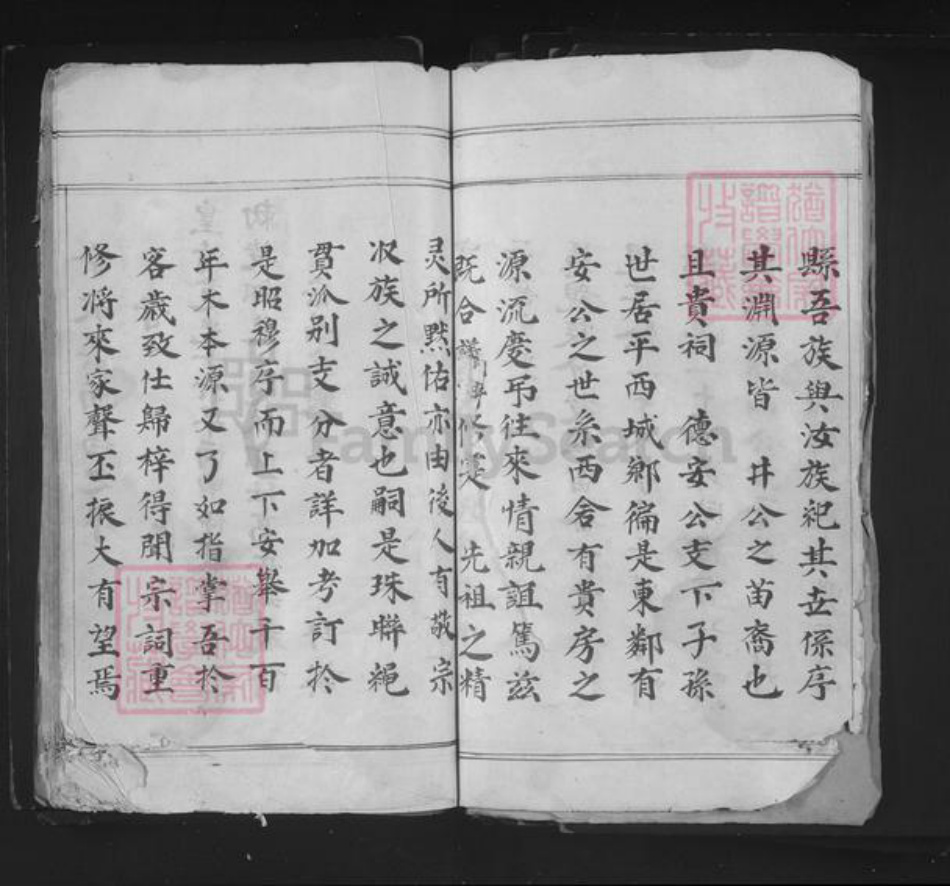 縣吾族與汝族祀其世係序
其淵源皆 井公之苗裔也
且貴祠 德安公支下子孫
世居平西城鄉徧是東鄰有
安公之世系西舍有貴房之
源流慶吊往來情親誼篤茲
既合譜 修是 先祖之精
灵所黙佑亦由後人有敬宗
収族之誠意也嗣是珠聯繩
貫派別支分者詳加考訂扵
是昭穆序而上下安舉千百
年木本源又了如指掌吾扵
客歲致仕歸梓得聞宗詞重
修將來家聲丕振大有望焉
FamilySearch